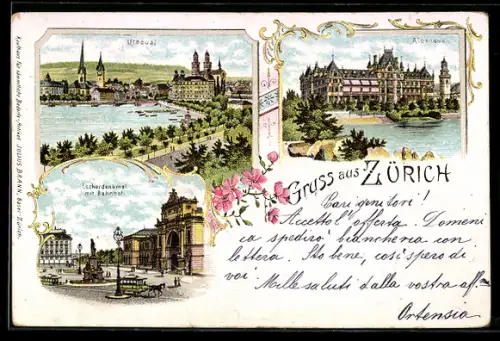 Uraquai
Alpenquai
Escherdenkmal
mit Bahnhof.
Gruss aus ZÜRICH
Kaufhaus für sämmtliche Bedarfs-Artikel JULIUS BRANN, Basel-Zürich.
Cari genitori!
Accetto l'offerta. Domeni
ca spedirò biancheria con
lettera. Sto bene, così spero di
voi. Mille saluti dalla vostra aff.
Ortensia